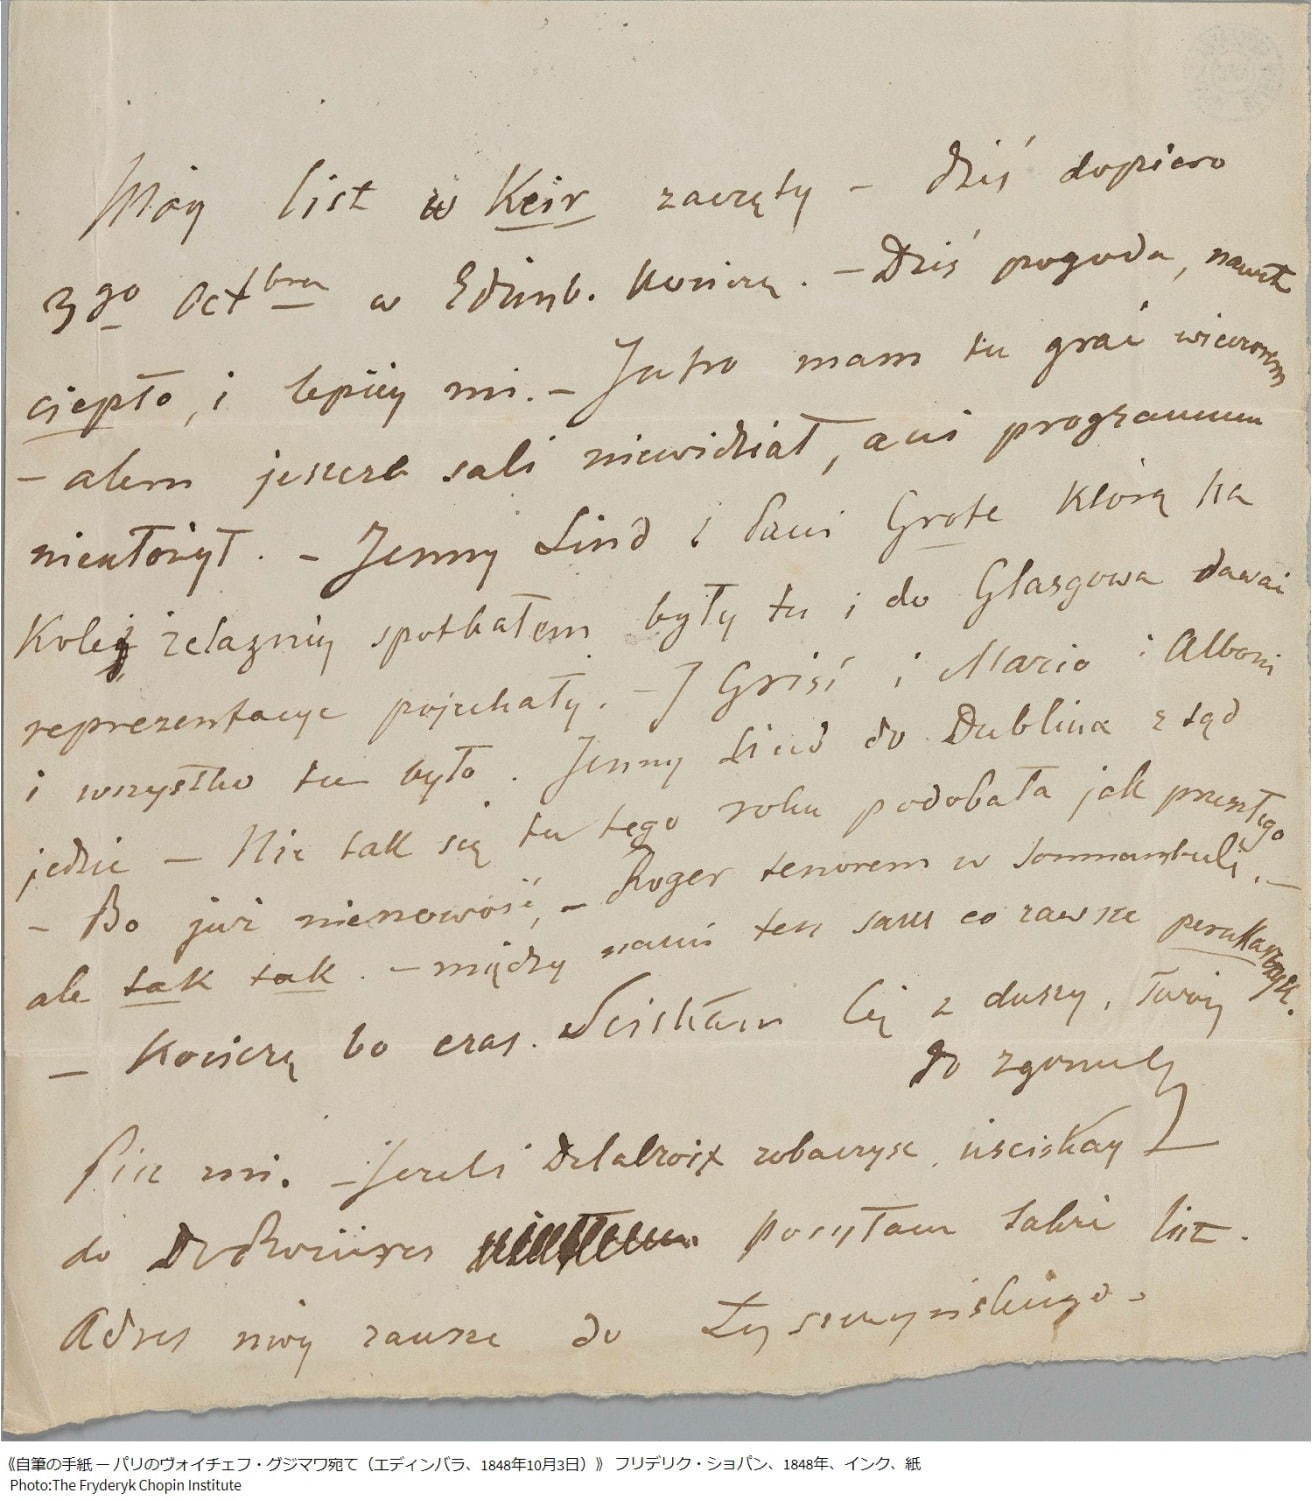 Móy list w Keir zaczęty – dziś dopiero
3go Octbra w Edimb. kończę. – Dziś pogoda, nawet
ciepło, i lepiéy mi. – Jutro mam tu grać wieczorem
– alem jeszcze sali niewidział, ani programmu
nieułożył. – Jenny Lind i Pani Grote którą na
Kolei żelaznéy spotkałem były tu i do Glasgowa dawać
reprezentacye pojechały. – I Grisi i Mario i Alboni
i wszystko tu było. Jenny Lind do Dublina z tąd
jedzie – Nie tak się tu tego roku podobała jak przeszłego
– Bo już nienowość, – Roger tenorem w Somnambuli. –
ale tak tak. – między nami ten sam co zawsze perukarczyk.
– Kończę bo czas. Sciskam Cię z duszy, Twóy
do zgonu
Pisz mi. – Jeżeli Delacroix zobaczysz, uściskay
do De Rozières posyłam także list.
Adres móy zawsze do Łyszczyńskiego.
《自筆の手紙 ─ パリのヴォイチェフ・グジマワ宛て（エディンバラ、1848年10月3日）》 フリデリク・ショパン、1848年、インク、紙
Photo:The Fryderyk Chopin Institute